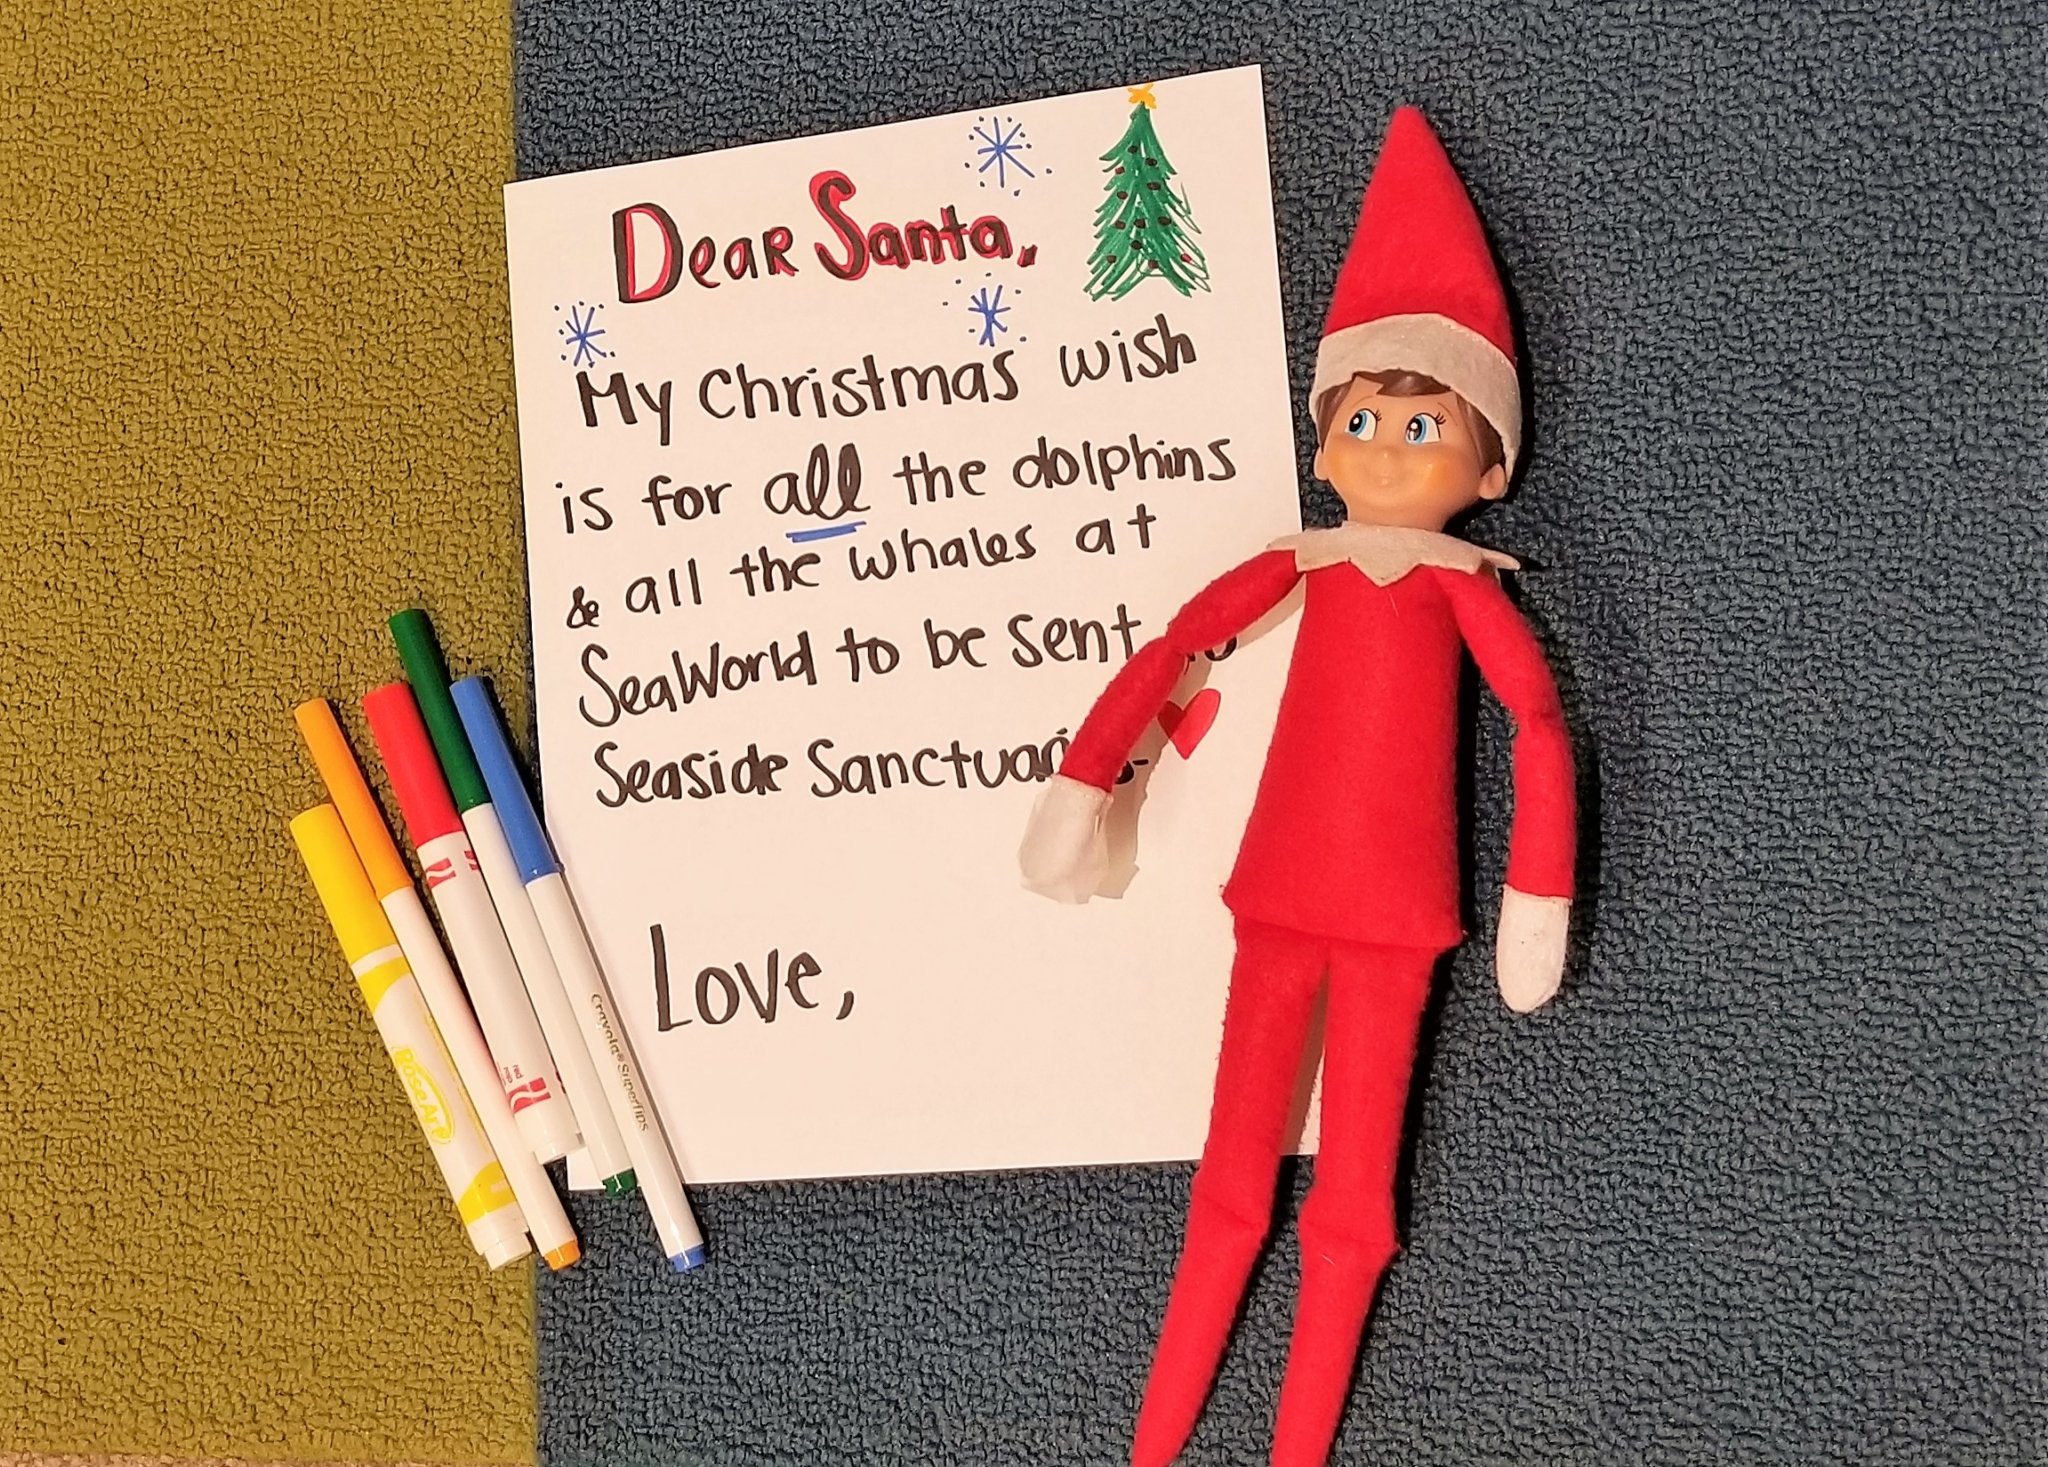 Dear Santa,
My Christmas wish
is for all the dolphins
& all the whales at
SeaWorld to be sent
Seaside
Love,
RoseArt
Crayola® SuperTips